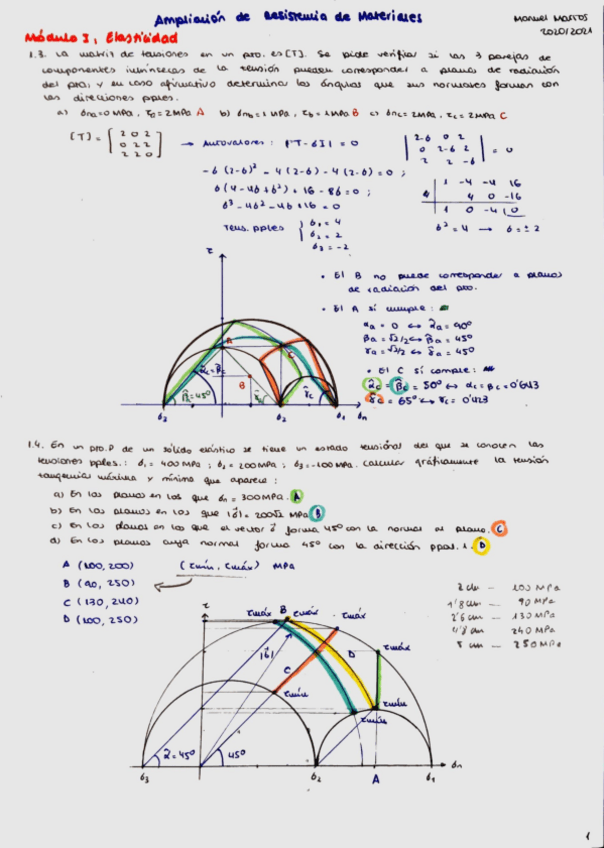 Ampliación de Resistencia de Materiales
Manuel Martos
2020/2021
Módulo I, Elasticidad
1.3. La matriz de tensiones en un pto. es [T]. Se pide verificar si las 3 parejas de
componentes intrínsecas de la tensión pueden corresponder a planos de radiación
del pto; y en caso afirmativo determinar los ángulos que sus normales forman con
las direcciones pples.
a) σna = 0 MPa, τa = 2 MPa A b) σnb = 1 MPa, τb = 1 MPa B c) σnc = 2 MPa, τc = 2 MPa C
[T] = [2 0 2
0 2 2
2 2 0]
→ Autovalores: |T - σI| = 0
|2-σ 0 2
0 2-σ 2
2 2 -σ| = 0
-σ(2-σ)² - 4(2-σ) - 4(2-σ) = 0;
σ(4 - 4σ + σ²) + 16 - 8σ = 0;
σ³ - 4σ² - 4σ + 16 = 0
1 -4 -4 16
4 4 0 -16
1 0 -4 0
σ² = 4 → σ = ± 2
Tens. pples
σ1 = 4
σ2 = 2
σ3 = -2
τ
• El B no puede corresponder a planos
de radiación del pto.
• El A sí cumple:
αa = 0 ↔ α̂a = 90°
βa = √2/2 ↔ β̂a = 45°
γa = √2/2 ↔ γ̂a = 45°
• El C sí cumple:
α̂c = β̂c = 50° ↔ αc = βc = 0'643
γ̂c = 65° ↔ γc = 0'423
A
C
B
α̂c = β̂c
β̂a = 45°
γ̂a
γ̂c
σ3
σ2
σ1
σn
1.4. En un pto. P de un sólido elástico se tiene un estado tensional del que se conocen las
tensiones pples.: σ1 = 400 MPa; σ2 = 200 MPa; σ3 = -100 MPa. Calcular gráficamente la tensión
tangencial máxima y mínima que aparece:
a) En los planos en los que σn = 300 MPa. A
b) En los planos en los que |σ⃗| = 200√2 MPa B
c) En los planos en los que el vector σ⃗ forma 45° con la normal al plano. C
d) En los planos cuya normal forma 45° con la dirección ppal. 1. D
A (100, 200) (τmín, τmáx) MPa
B (90, 250)
C (130, 240)
D (100, 250)
2 cm — 100 MPa
1'8 cm — 90 MPa
2'6 cm — 130 MPa
4'8 cm — 240 MPa
5 cm — 250 MPa
τ
τmáx
B
τmáx
τmáx
τmáx
|σ⃗|
D
C
τmín
τmín
τmín
α̂ = 45°
45°
σ3
σ2
A
σ1
σn
1